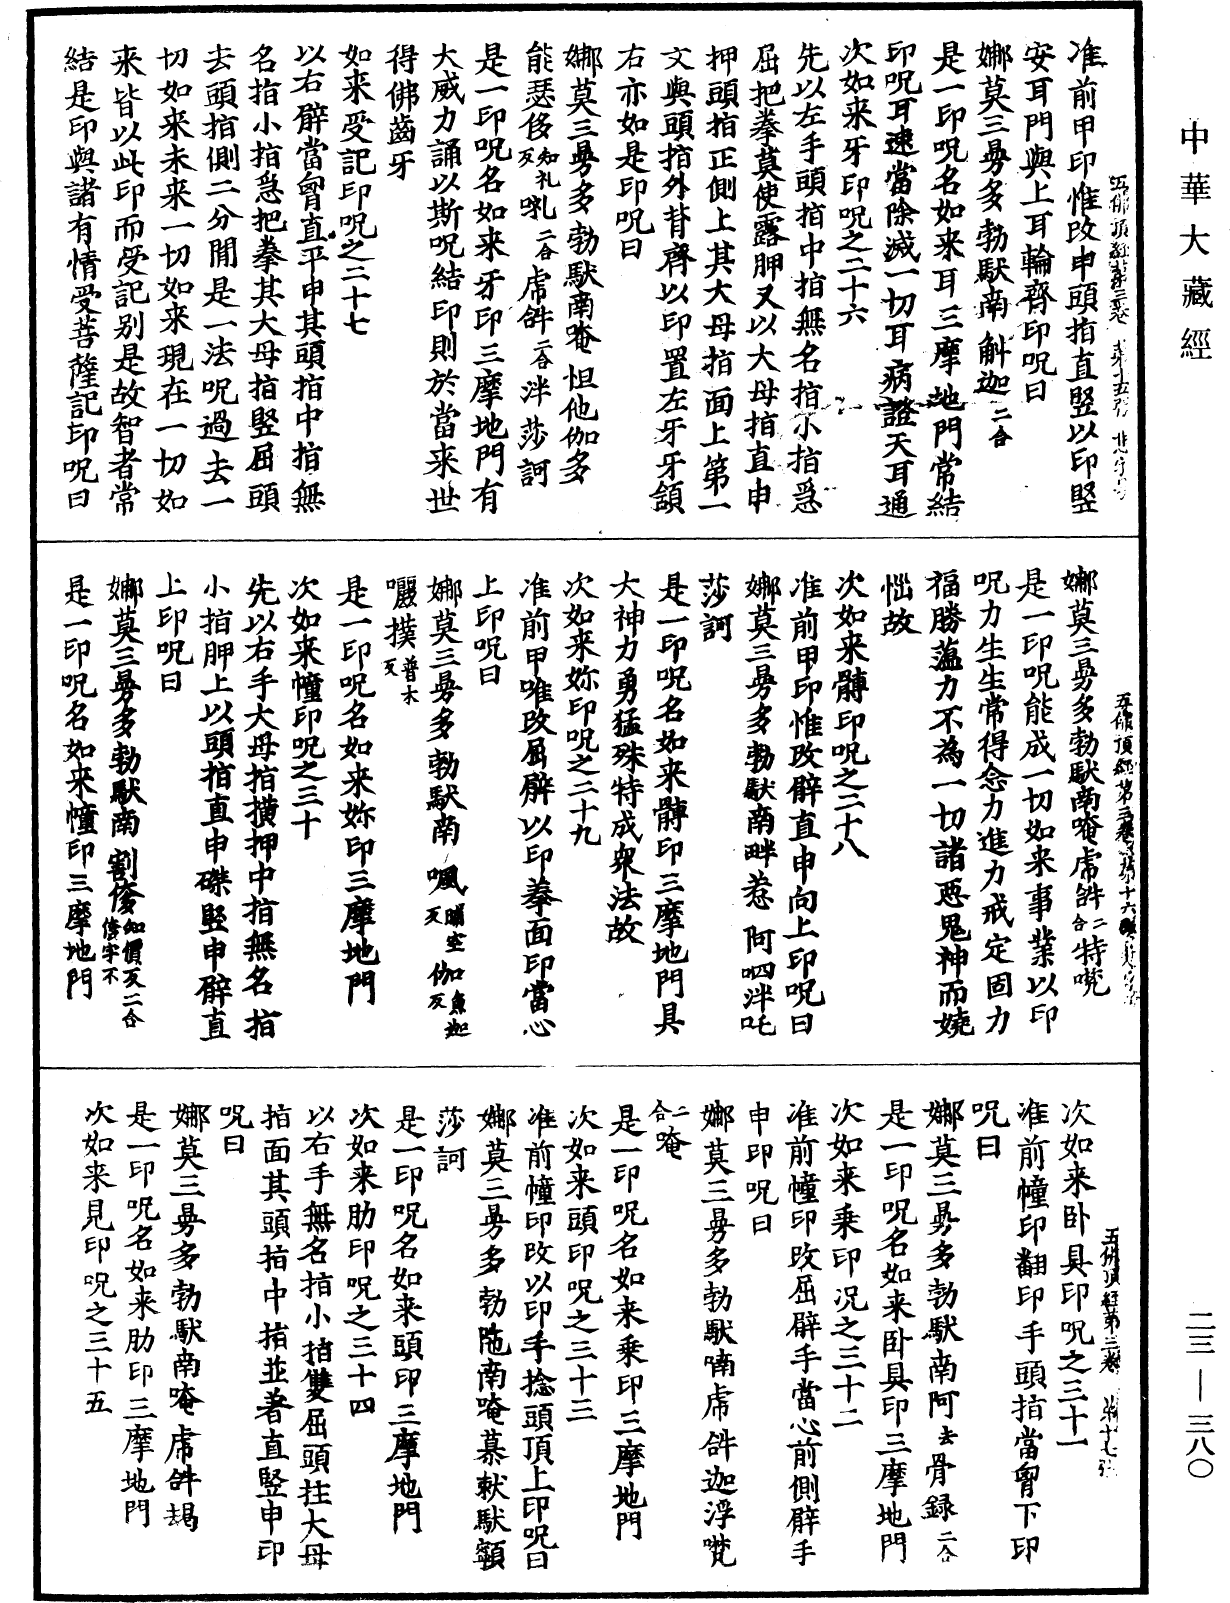 中華大藏經
准前甲印惟改申頭指直竪以印竪
安耳門與上耳輪齊印呪曰
娜莫三曼多勃馱南斛迦二合
是一印呪名如来耳三摩地門常結
印呪耳速當除滅一切耳病證天耳通
次如来牙印呪之二十六
先以左手頭指中指無名指小指急
屈把拳莫使露胛又以大母指直申
押頭指正側上其大母指面上第一
文與頭指外背齊以印置左牙牙頷
右亦如是印呪曰
娜莫三曼多勃馱南唵怛他伽多
能瑟侈知礼反𠿒二合虎𤙖二合泮莎訶
是一印呪名如来牙印三摩地門有
大威力誦以斯呪結印則於當来世
得佛齒牙
如来受記印呪之二十七
以右臂當胷直平申其頭指中指無
名指小指急把拳其大母指竪屈頭
去頭指側二分間是一法呪過去一
切如来未来一切如来現在一切如
来皆以此印而受記别是故智者常
結是印與諸有情受菩薩記印呪曰
五佛頂經第三卷 第十六張
娜莫三曼多勃馱南唵虎𤙖二合特㘕
是一印呪能成一切如来事業以印
呪力生生常得念力進力戒定固力
福勝藴力不為一切諸惡鬼神而嬈
惱故
次如来髆印呪之二十八
准前甲印惟改臂直申向上印呪曰
娜莫三曼多勃馱南畔惹阿呬泮吒
莎訶
是一印呪名如来髆印三摩地門具
大神力勇猛殊特成衆法故
次如来妳印呪之二十九
准前甲唯改屈臂以印拳面印當心
上印呪曰
娜莫三曼多勃馱南
㘑撲普木反
是一印呪名如来妳印三摩地門
次如来幢印呪之三十
先以右手大母指横押中指無名指
小指胛上以頭指直申磔竪申臂直
上印呪曰
娜莫三曼多勃馱南割俊
是一印呪名如来幢印三摩地門
五佛頂經第三卷 第十七張
次如来卧具印呪之三十一
准前幢印翻印手頭指當胷下印
呪曰
娜莫三曼多勃馱南阿去骨録二合
是一印呪名如来卧具印三摩地門
次如来乗印况之三十二
准前幢印改屈臂手當心前側臂手
申印呪曰
娜莫三曼多勃馱喃虎𤙖迦浮㘕
二合唵
是一印呪名如来乗印三摩地門
次如来頭印呪之三十三
准前幢印改以印手捻頭頂上印呪曰
娜莫三曼多勃陁南唵慕㗚馱額
莎訶
是一印呪名如来頭印三摩地門
次如来肋印呪之三十四
以右手無名指小指雙屈頭拄大母
指面其頭指中指並著直竪申印
呪曰
娜莫三曼多勃馱南唵虎𤙖朅
是一印呪名如来肋印三摩地門
次如来見印呪之三十五
二三—三八〇